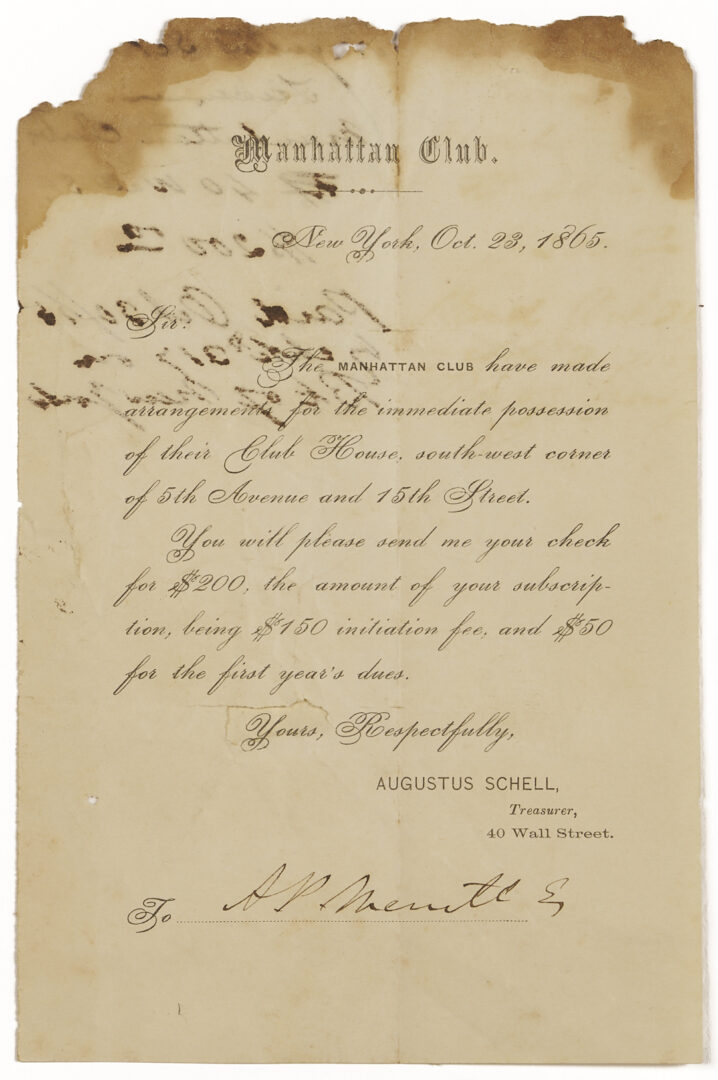 Manhattan Club.
New York, Oct. 23, 1865.
Sir:
The MANHATTAN CLUB have made
arrangements for the immediate possession
of their Club House, south-west corner
of 5th Avenue and 15th Street.
You will please send me your check
for $200, the amount of your subscrip-
tion, being $150 initiation fee, and $50
for the first year's dues.
Yours, Respectfully,
AUGUSTUS SCHELL,
Treasurer,
40 Wall Street.
To A P. Merritt E